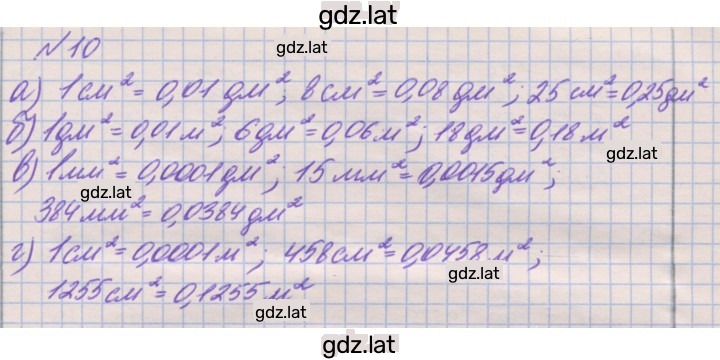 gdz.lat
№10
gdz.lat
а) 1см² = 0,01 дм²; 8см² = 0,08 дм²; 25 см² = 0,25дм²
б) 1дм² = 0,01 м²; 6дм² = 0,06 м²; 18дм² = 0,18 м²
gdz.lat
в) 1мм² = 0,0001дм²; 15 мм² = 0,0015дм²;
gdz.lat
384мм² = 0,0384дм²
г) 1см² = 0,0001м²; 458см² = 0,0458 м²;
gdz.lat
1255см² = 0,1255 м²
gdz.lat
gdz.lat